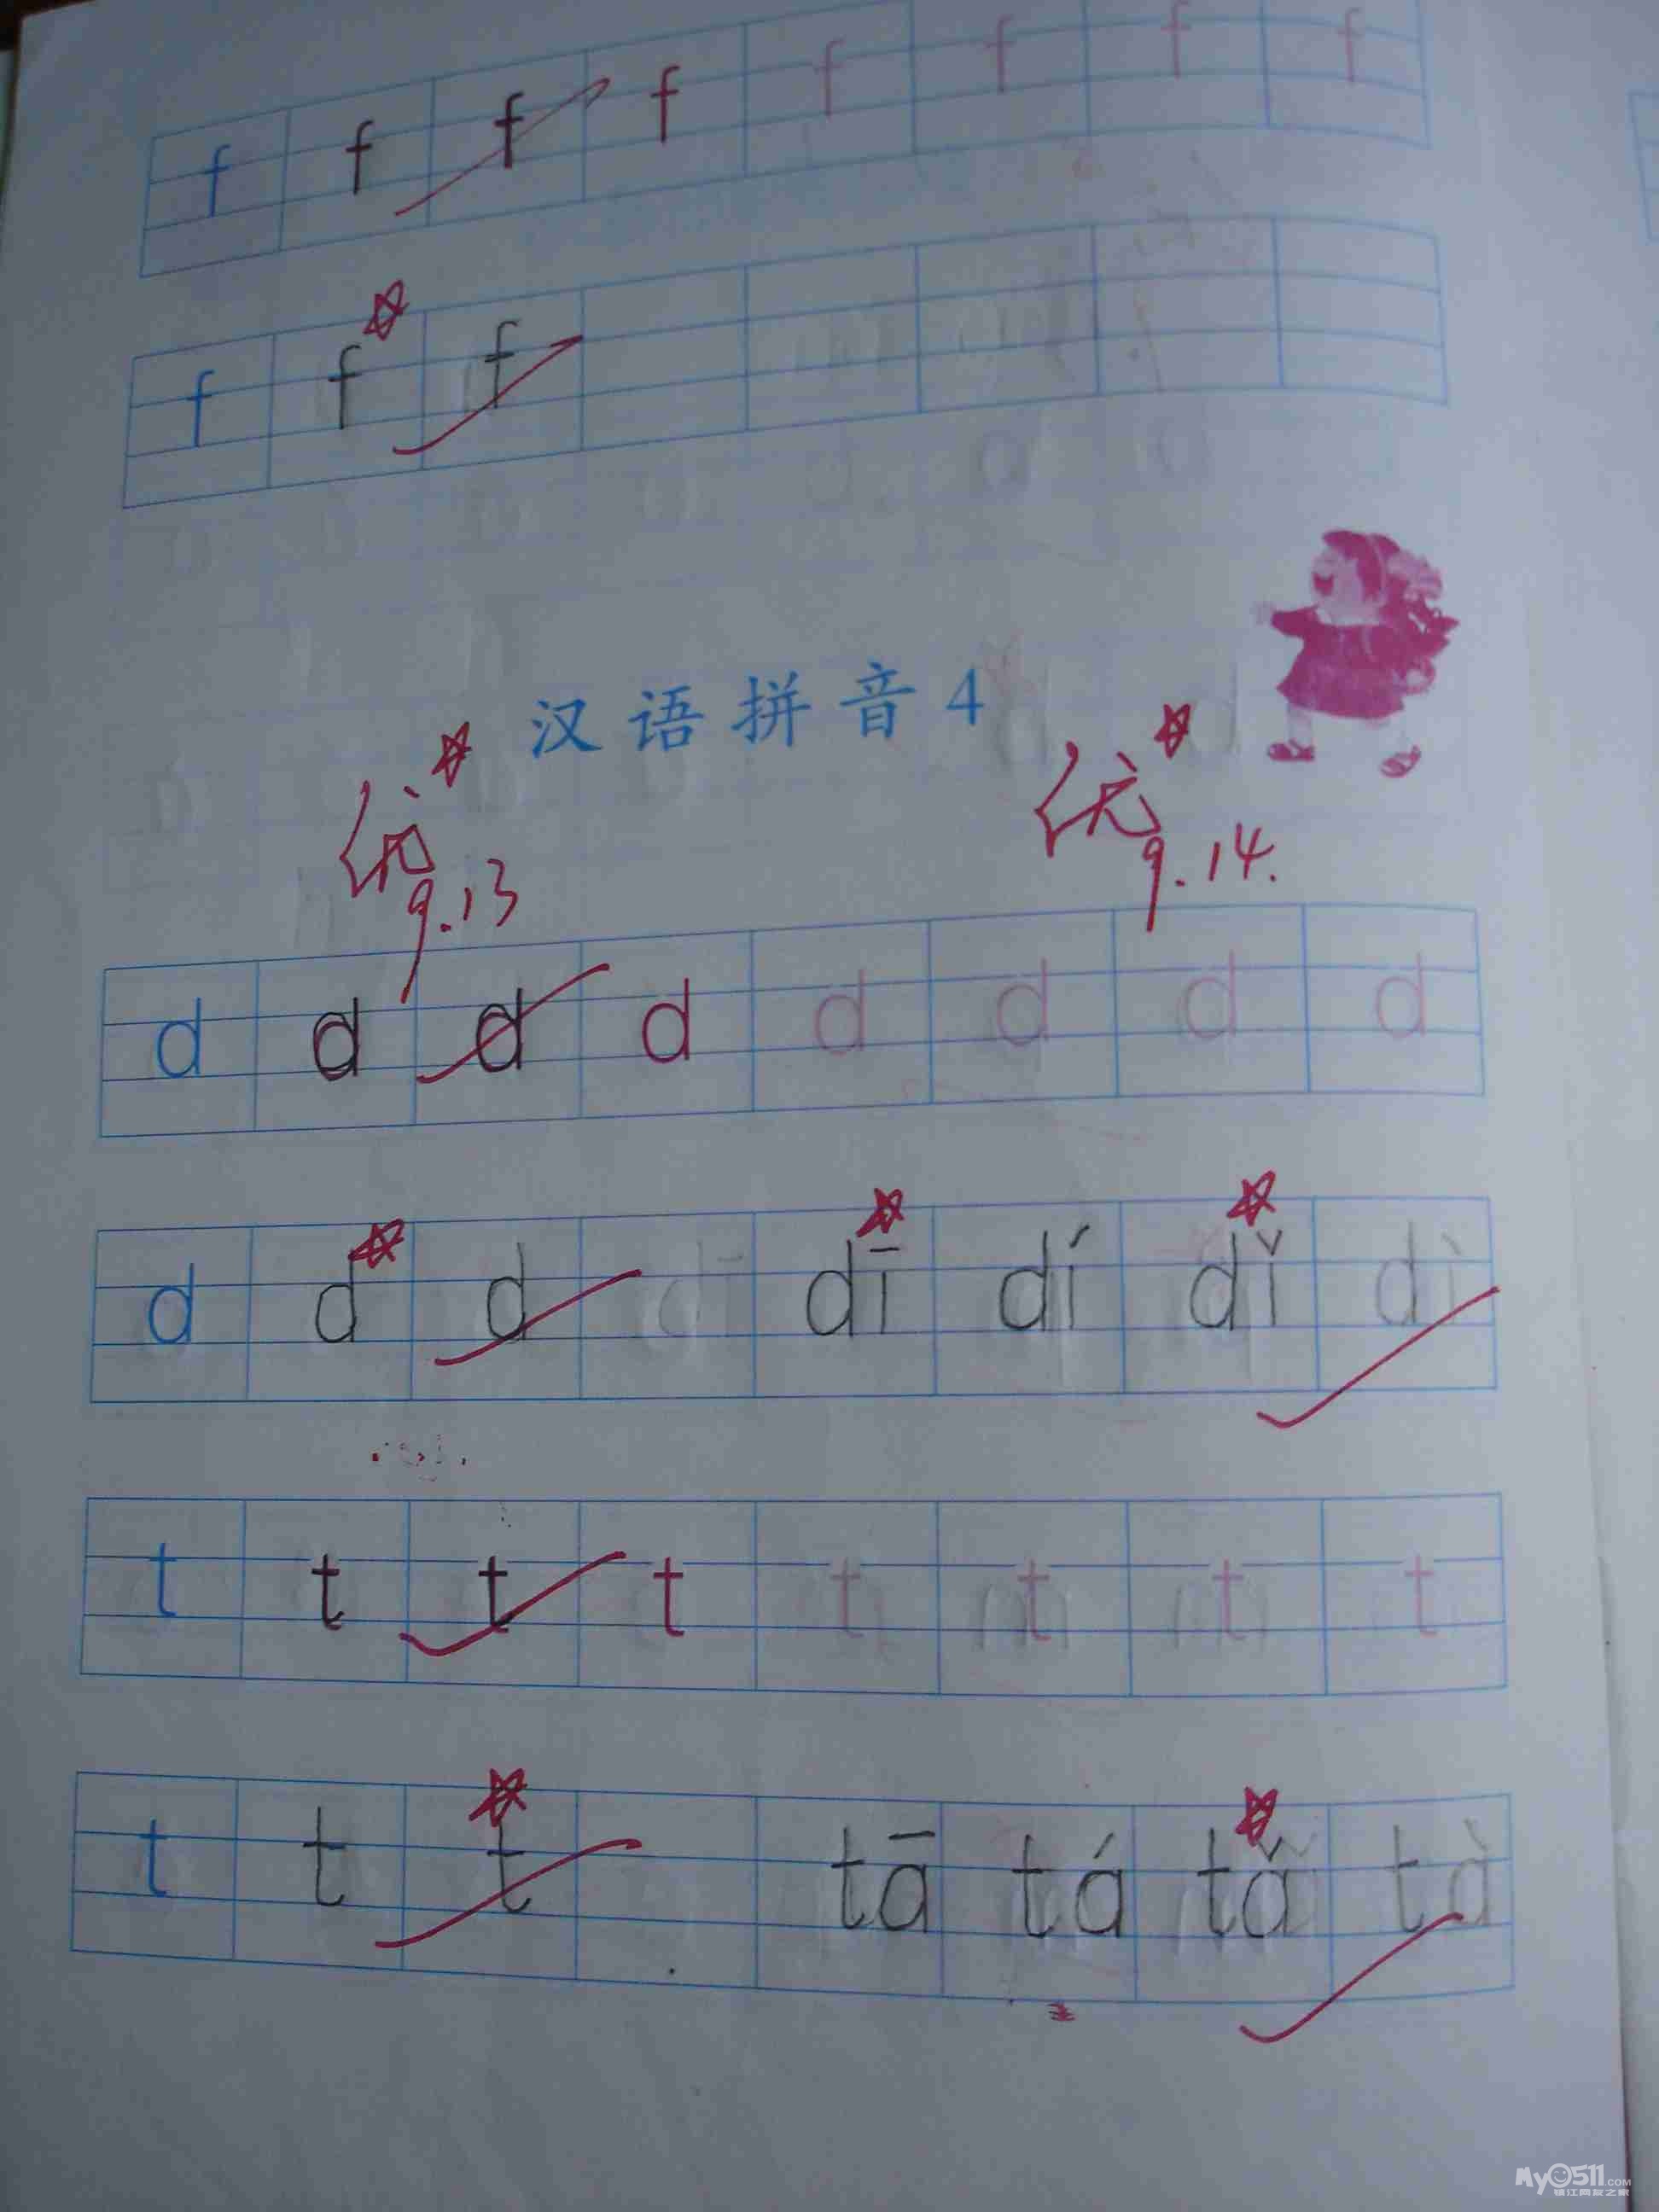 f f f f f f f f
f f f
汉语拼音4
优 优
9.13 9.14.
d d d d d d d d
d d d dī dī dí dǐ dì
t t t t t t t t
t t t tā tá tǎ tà
My0511.COM
镇江网友之家